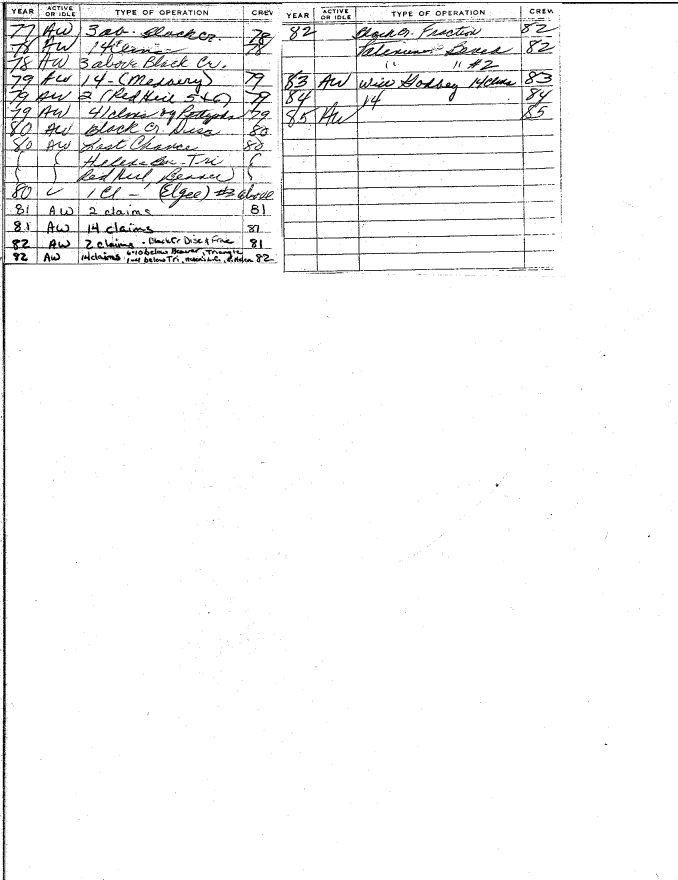 YEAR ACTIVE OR IDLE TYPE OF OPERATION CREW
77 AW 3 ab. Black Cr. 78
78 AW 14 Claims 78
78 AW 3 above Black Cr.
79 AW 14 - (Medsery) 79
79 AW 2 (Red Hill 5+6) 79
79 AW 41 clms 79
80 AW Black Cr. Disc 80
80 AW Last Chance 80
Tri
Red Hill, Beaver)
80 1 Cl - (Elgee) #3 above
81 AW 2 claims 81
81 AW 14 claims 81
82 AW 2 claims - Black Cr Disc & Frac 81
82 AW 14 claims 6-10 below Beaver, Triangle 82
1-4 below Tri,
YEAR ACTIVE OR IDLE TYPE OF OPERATION CREW
82 Black Cr. Fraction 82
Bench 82
" " #2
83 AW Will Godsey 14 clms 83
84 14 84
85 AW 85